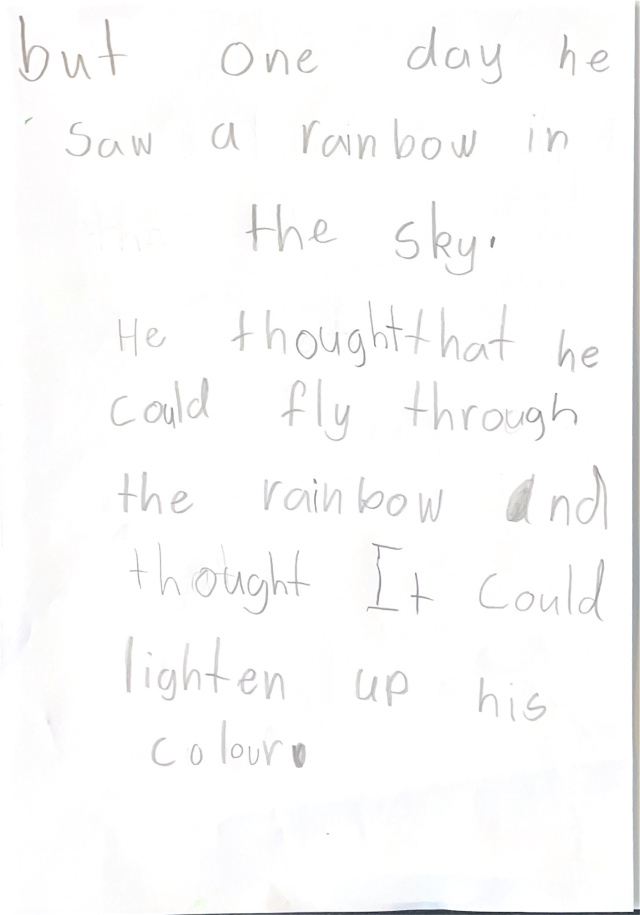 but one day he
saw a rainbow in
the sky.
He thoughtthat he
could fly through
the rainbow and
thought It could
lighten up his
colour.